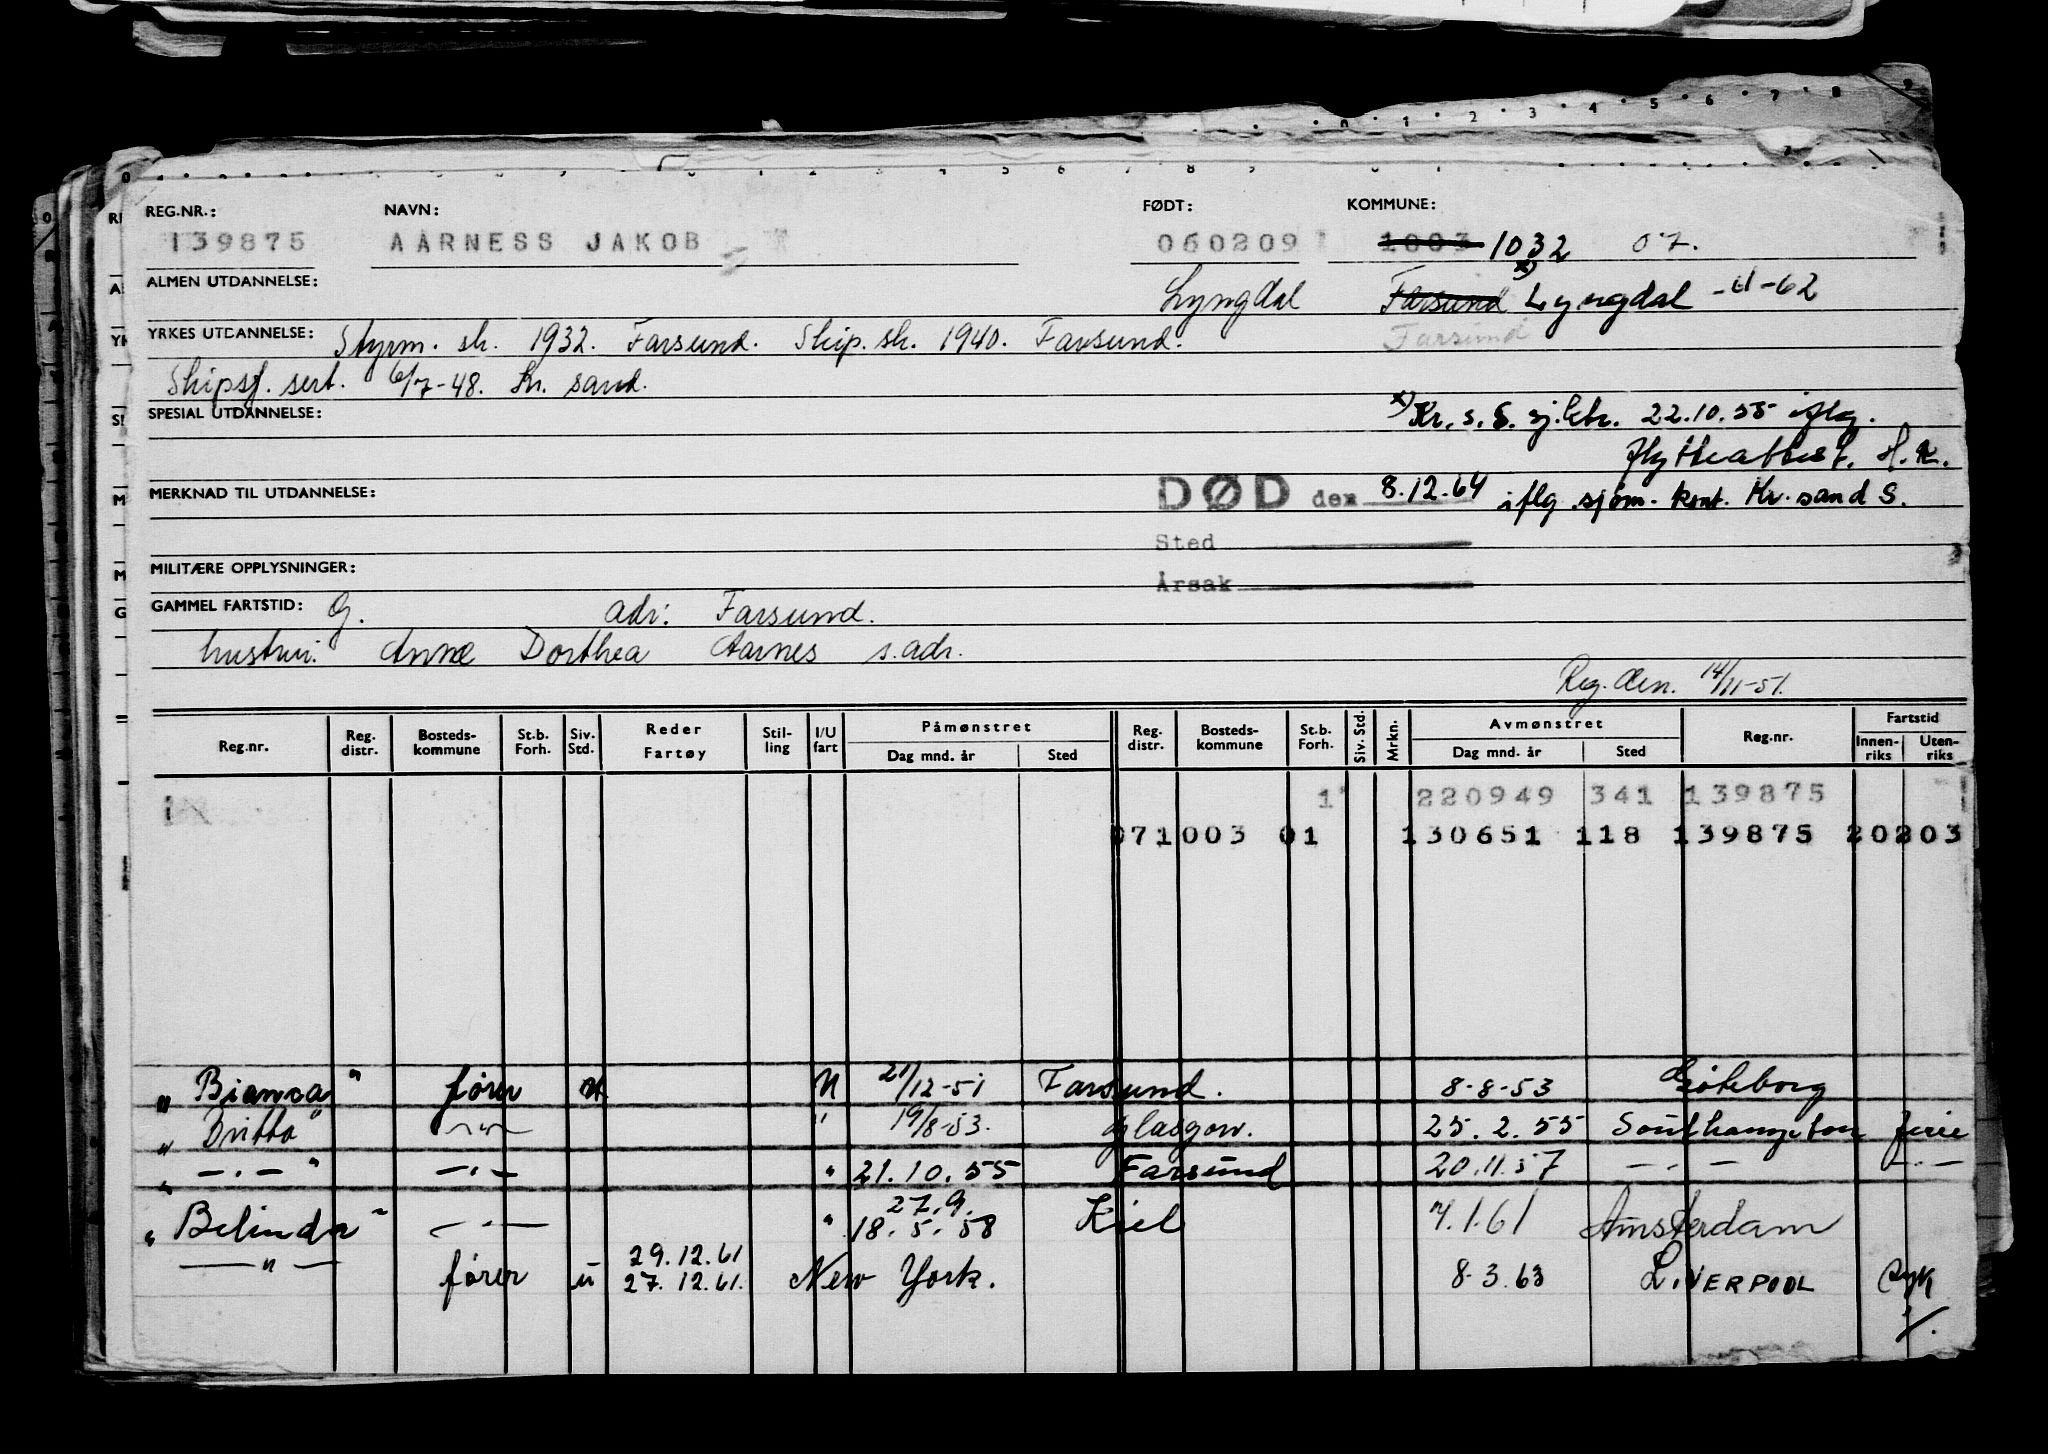 REG.NR.: NAVN: FØDT: KOMMUNE:
139875 AARNESS JAKOB 060209 1003 1032 07.
ALMEN UTDANNELSE: Lyngdal Farsund x) Lyngdal -62
YRKES UTDANNELSE: Styrm. sk. 1932. Farsund. Skip. sk. 1940. Farsund. Farsund
Skipsf. sert. 6/7-48. Kr. sand.
SPESIAL UTDANNELSE: x) Kr. s. S. sj.ktr. 22.10.55 iflg.
flytteattest. H.K.
MERKNAD TIL UTDANNELSE: DØD den 8.12.64 iflg. sjøm. kont. Kr. sand S.
Sted
MILITÆRE OPPLYSNINGER: Årsak
GAMMEL FARTSTID: G. adr: Farsund.
hustru: Anne Dorthea Aarnes s. adr.
Reg. den. 14/11-51.
Reg.nr. Reg. distr. Bosteds- kommune St.b. Forh. Siv. Std. Reder Fartøy Stil- ling I/U fart Påmønstret Dag mnd. år Sted Reg. distr. Bosteds- kommune St.b. Forh. Siv. Std. Mrkn. Avmønstret Dag mnd. år Sted Reg.nr. Fartstid Innen- riks Uten- riks
1 220949 341 139875
071003 01 130651 118 139875 20203
"Bianca" fører U 21/12-51 Farsund. 8-8-53 Göteborg
"Britta" -"- " 19/8-53. Glasgow. 25.2.55 Southampton ferie
" -.- " -.- " 21.10.55 Farsund 20.11.57 -.- -.-
27.9.
"Belinda" -.- " 18.5.58 Kiel 7.1.61 Amsterdam
29.12.61
-"- fører u 27.12.61. New York. 8.3.63 LIVERPOOL syk